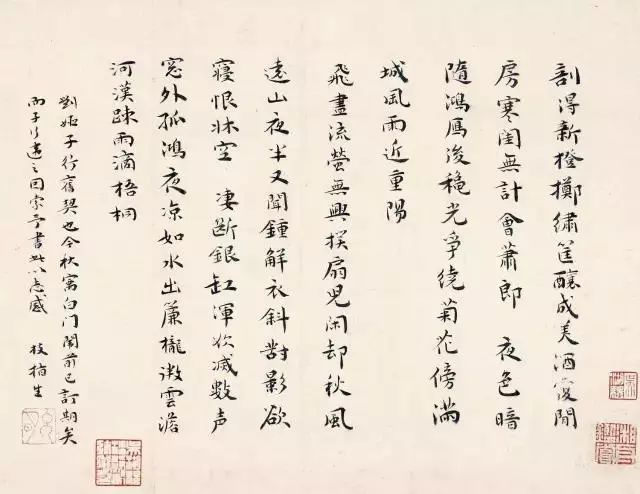 剖得新橙擲繡筐釀成美酒覆閒
房寒閨無計會蕭郎 夜色暗
隨鴻雁後穐光爭繞菊花傍滿
城風雨近重陽
飛盡流螢無興撲扇兒閑却秋風
遠山夜半又聞鍾解衣斜對影欲
寢恨牀空 凄斷銀缸渾欲減數声
窓外孤鴻夜凉如水出簾櫳微雲澹
河漢疎雨滴梧桐
劉姬子行舊契也今秋寓白门前已訂期矣
而子行之因索予書此以志感 枝指生